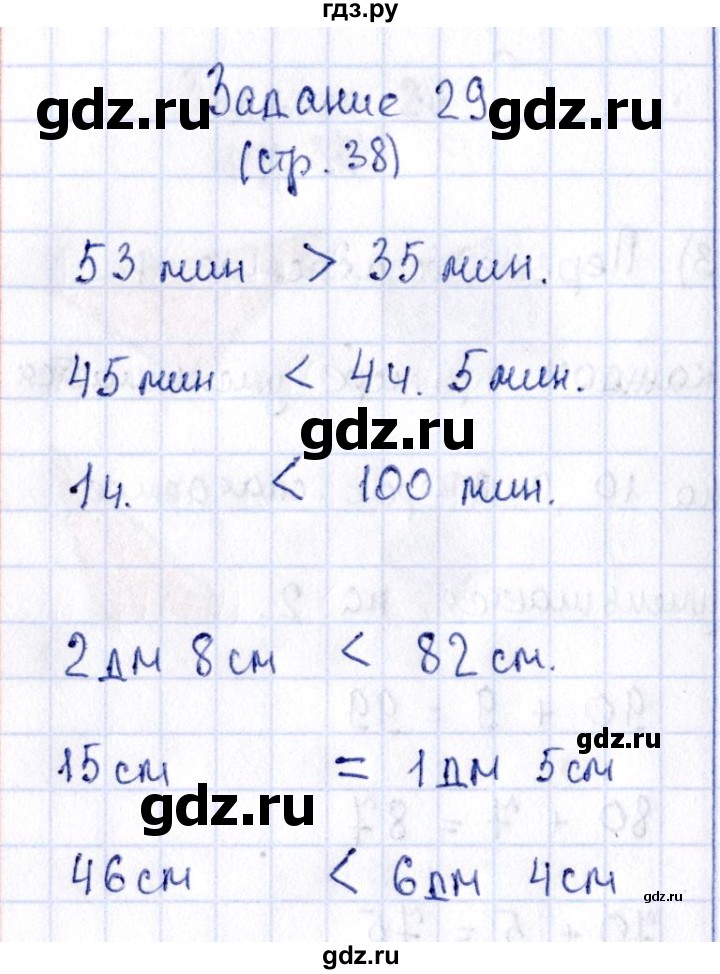 гдз.ру
gdz.ru
Задание 29
gdz.ru
(стр. 38)
53 мин > 35 мин.
45 мин < 4ч. 5 мин.
gdz.ru
1ч. < 100 мин.
2 дм 8 см < 82 см.
gdz.ru
15 см = 1 дм 5 см
gdz.ru
46 см < 6 дм 4 см
gdz.ru
gdz.ru